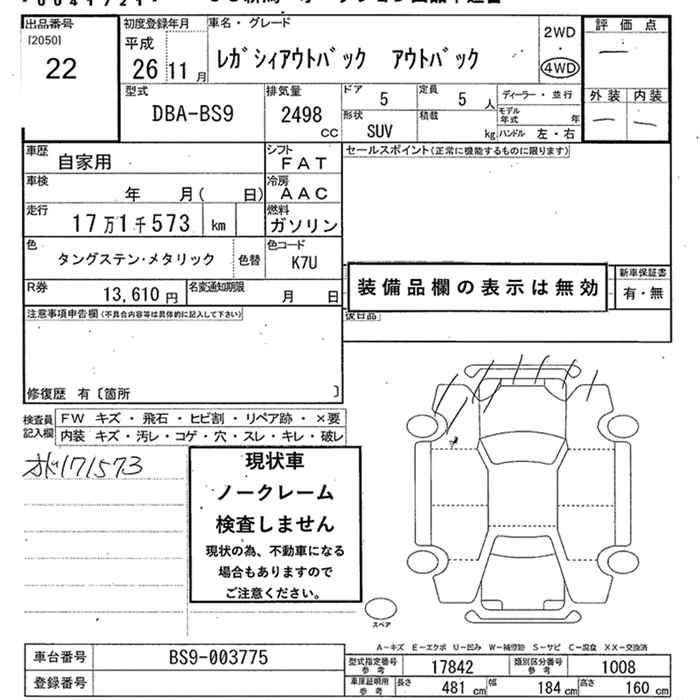 出品番号
[2050]
22
初度登録年月
平成
26 11 月
車名・グレード
レガシィアウトバック アウトバック
2WD
・
4WD
評価点
―
外装 内装
― ―
型式
DBA-BS9
排気量
2498
CC
ドア
5
定員
5 人
形状
SUV
積載
kg
ディーラー・並行
モデル年式 年
ハンドル 左・右
車歴
自家用
シフト
FAT
車検
年 月( 日)
冷房
AAC
走行
17万1千573 km
燃料
ガソリン
色
タングステン・メタリック
色替
色コード
K7U
R券
13,610 円
名変通知期限
月 日
セールスポイント(正常に機能するものに限ります)
装備品欄の表示は無効
新車保証書
有・無
後日品
注意事項申告欄(不具合内容等は具体的に記入して下さい)
修復歴 有〔箇所 〕
検査員記入欄
FW キズ・飛石・ヒビ割・リペア跡・×要
内装 キズ・汚レ・コゲ・穴・スレ・キレ・破レ
171573
現状車
ノークレーム
検査しません
現状の為、不動車になる
場合もありますので
ご注意ください。
スペア
A-キズ E-エクボ U-凹み W-補修跡 S-サビ C-腐食 XX-交換済
車台番号
BS9-003775
登録番号
型式指定番号 参考
17842
類別区分番号 参考
1008
車庫証明用 参考
長さ 481 cm
幅 184 cm
高さ 160 cm